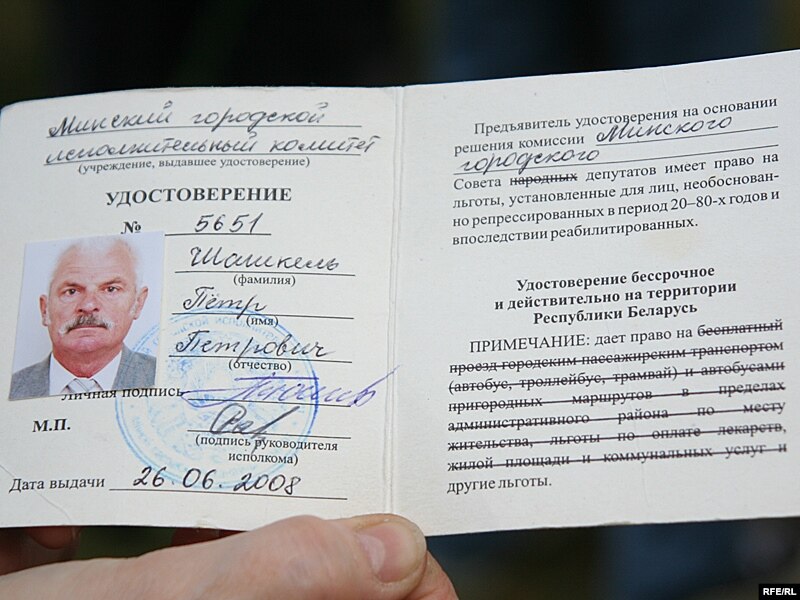 Минский городской
исполнительный комитет
(учреждение, выдавшее удостоверение)
УДОСТОВЕРЕНИЕ
№ 5651
Шашкель
(фамилия)
Пётр
(имя)
Петрович
(отчество)
Личная подпись
М.П.
(подпись руководителя
исполкома)
Дата выдачи 26.06.2008
Предъявитель удостоверения на основании
решения комиссии Минского
городского
Совета народных депутатов имеет право на
льготы, установленные для лиц, необоснован-
но репрессированных в период 20–80-х годов и
впоследствии реабилитированных.
Удостоверение бессрочное
и действительно на территории
Республики Беларусь
ПРИМЕЧАНИЕ: дает право на бесплатный
проезд городским пассажирским транспортом
(автобус, троллейбус, трамвай) и автобусами
пригородных маршрутов в пределах
административного района по месту
жительства, льготы по оплате лекарств,
жилой площади и коммунальных услуг и
другие льготы.
RFE/RL